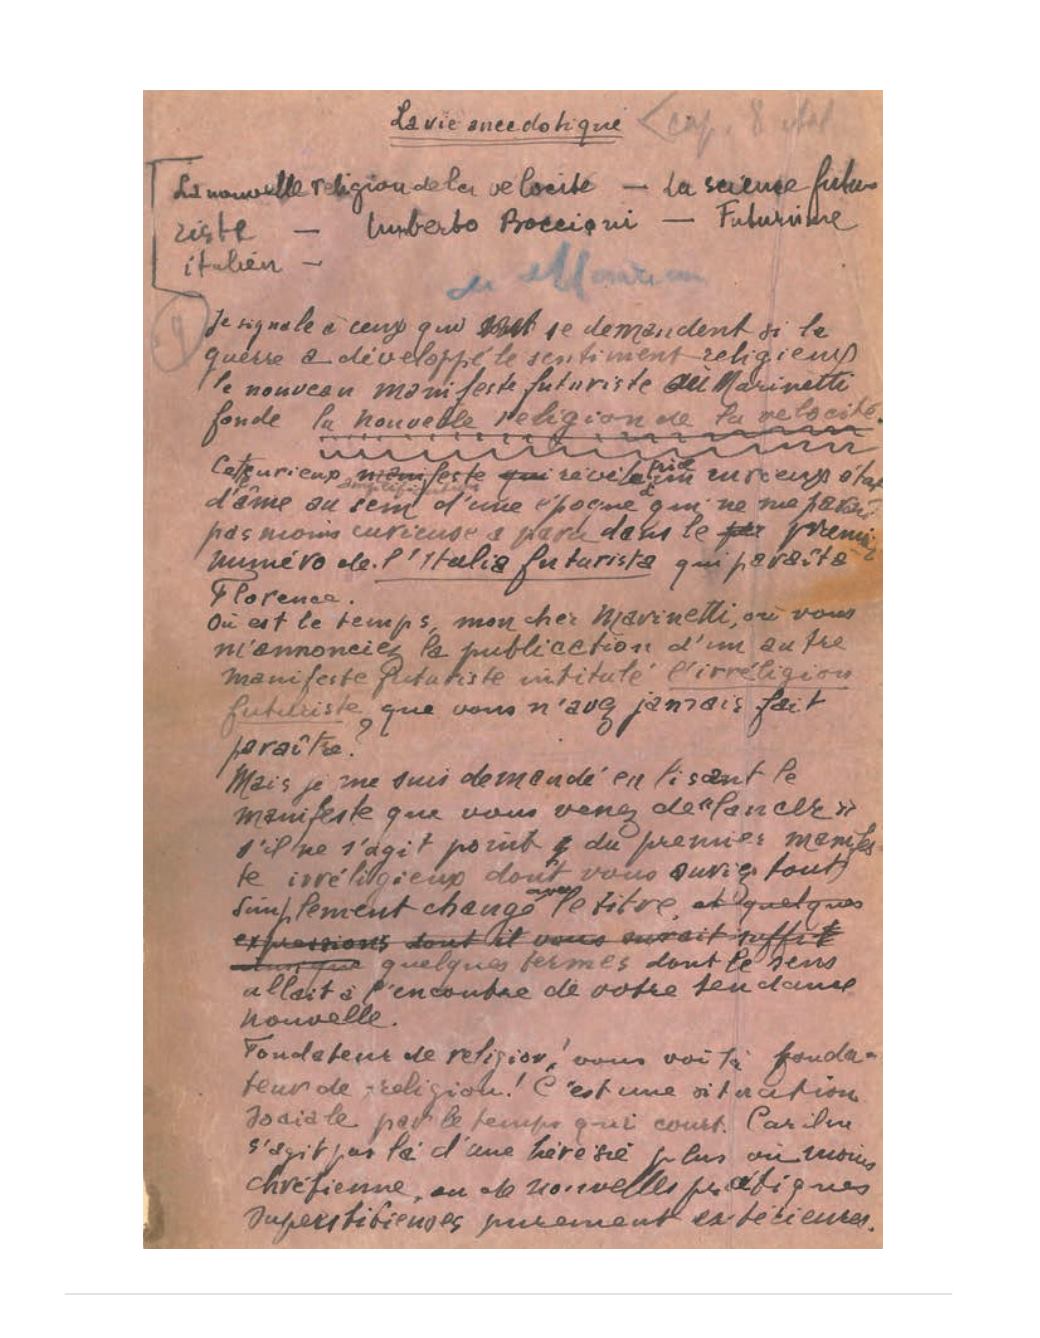 La vie anecdotique
La nouvelle religion de la vélocité — La science futu
riste — Umberto Boccioni — Futurisme
italien —
Je signale à ceux qui se demandent si la
guerre a développé le sentiment religieux
le nouveau manifeste futuriste Marinetti
fonde la nouvelle religion de la vélocité.
Ce curieux manifeste qui
d'âme au sein d'une époque qui ne me
pas moins curieuse a paru dans le premi
numéro de l'Italia futurista qui paraît à
Florence.
Où est le temps, mon cher Marinetti, où vous
m'annonciez la publication d'un autre
manifeste futuriste intitulé l'irréligion
futuriste, que vous n'avez jamais fait
paraître?
Mais je me suis demandé en lisant le
manifeste que vous venez de "lancer"
s'il ne s'agit point du premier manifes-
te irréligieux dont vous auriez tout
simplement changé avec le titre, et quelques
expressions dont il vous aurait suffit
quelques termes dont le sens
allait à l'encontre de votre tendance
nouvelle.
Fondateur de religion! vous voilà fonda-
teur de religion! C'est une situation
sociale par le temps qui court. Car il ne
s'agit pas là d'une hérésie plus ou moins
chrétienne, ou de nouvelles pratiques
superstitieuses purement extérieures.